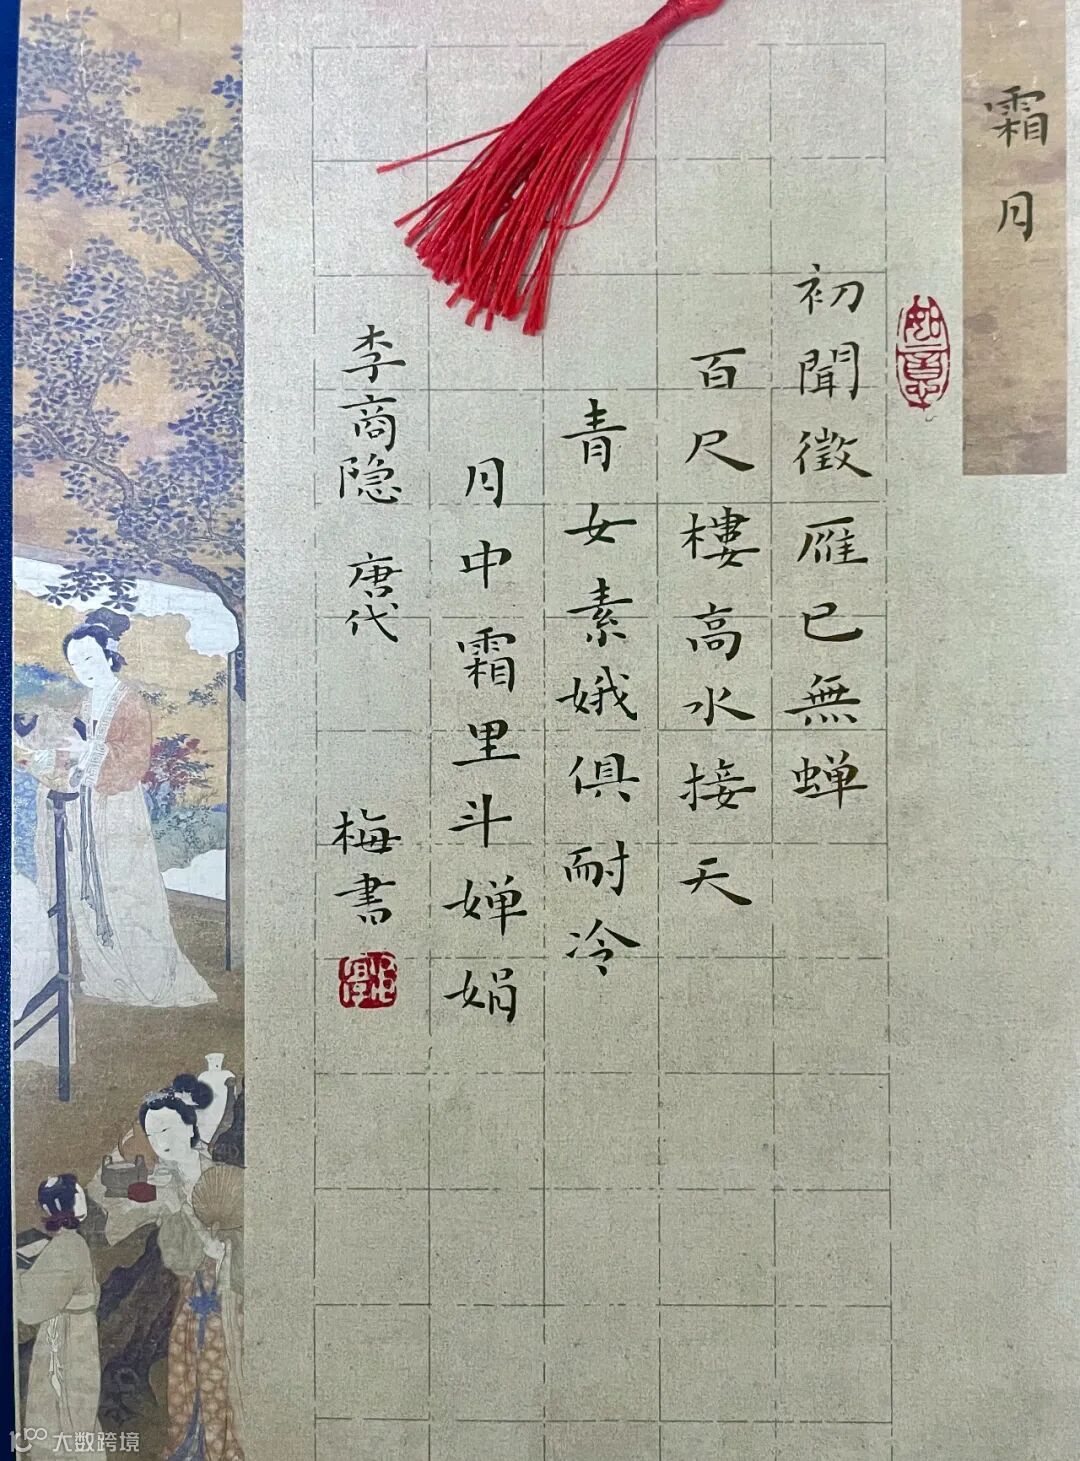 霜月
如意
初聞徵雁已無蝉
百尺樓高水接天
青女素娥俱耐冷
月中霜里斗婵娟
李商隐 唐代
梅書
大数跨境